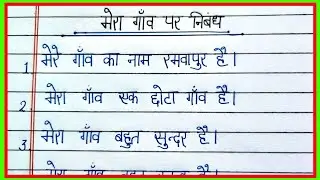 मेरा गाँव पर निबंध
1. मेरे गाँव का नाम रमवापुर है।
2. मेरा गाँव एक छोटा गाँव है।
3. मेरा गाँव बहुत सुन्दर है।